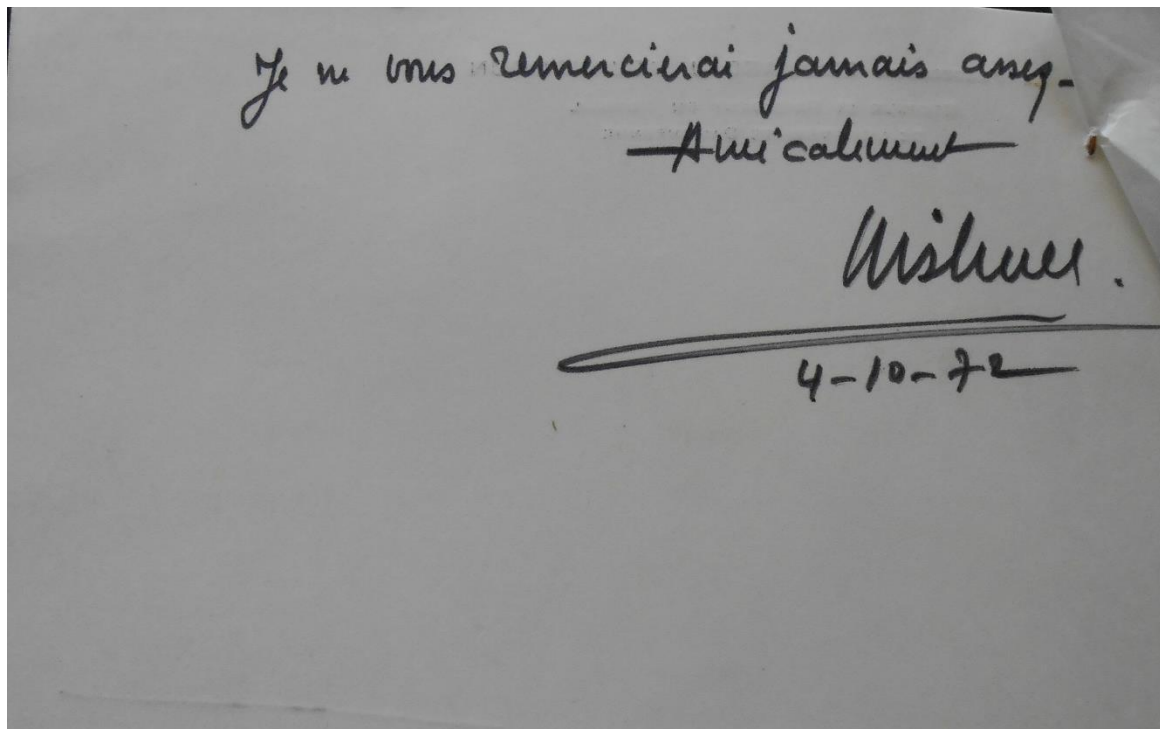 Je ne vous remercierai jamais assez-
Amicalement
4-10-72